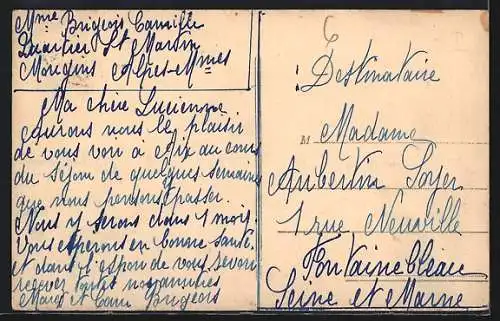 Mme Brigeois Camille
Quartier St Martin
Mougins Alpes-Mmes
Ma chère Lucienne
Aurons nous le plaisir
de vous voir à Aix au cours
du séjour de quelques semaines
que nous pensons passer.
Nous y serons dans 1 mois.
Vous espérons en bonne santé
et dans l'espoir de vous revoir
recevez toutes nos amitiés
et Cam Brigeois
6
Destinataire
M
Madame
Aubertin Soyer
1 rue Neuville
Fontainebleau
Seine et Marne